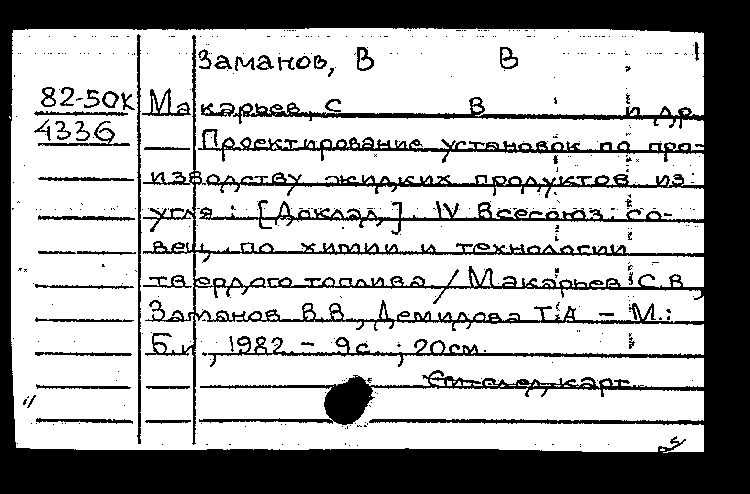 Заманов, В В
82-50к Макарьев, С В и др.
4336 Проектирование установок по про-
изводству жидких продуктов из
угля : [Доклад]. IV Всесоюз. со-
вещ. по химии и технологии
твердого топлива / Макарьев С.В.,
Заманов В.В., Демидова Т.А. - М.:
Б.и, 1982. - 9с.; 20см.